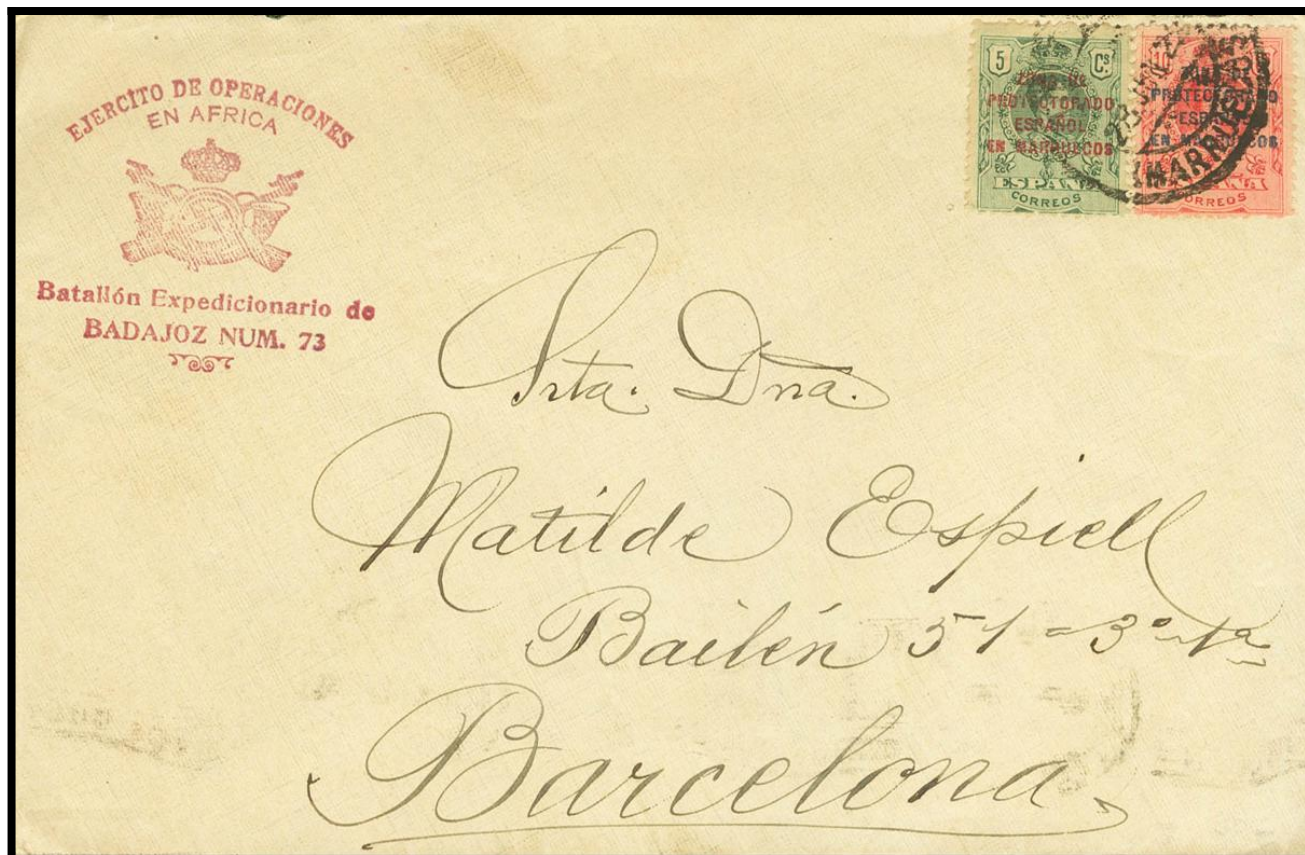 EJERCITO DE OPERACIONES
EN AFRICA
Batallón Expedicionario de
BADAJOZ NUM. 73
5 Cs.
ZONA DE
PROTECTORADO
ESPAÑOL
EN MARRUECOS
ESPAÑA
CORREOS
PROTECTORADO
ESPAÑOL
EN MARRUECOS
ESPAÑA
CORREOS
Srta. Dna.
Matilde Espiell
Bailén 51 = 3º 1ª
Barcelona